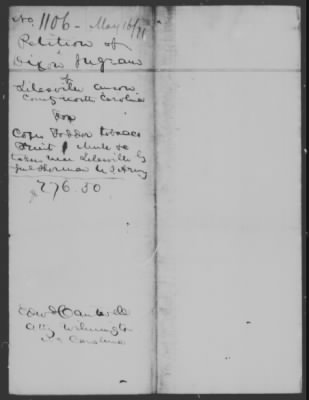 No. 1106 - May 16/71
Petition of
Dixon Ingram
of
Lilesville Anson
County North Carolina
For
Corn Fodder Tobacco
Fruit 1 Mule &c
taken near Lilesville by
Genl Sherman U S Army
276.50
Edwd Cantwell
Atty Wilmington
No Carolina